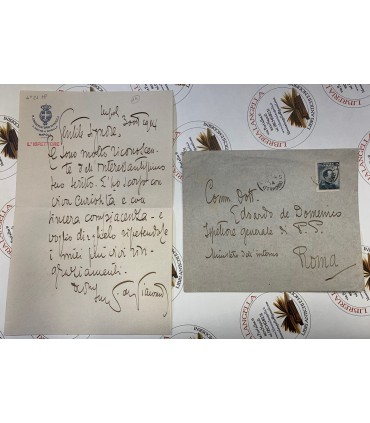 IL ISPETTORE
Gentile Signore,
Le sono molto riconoscen-
te dell'interessantissimo
suo scritto. L'ho scorso con
viva curiosità e con
sincera compiacenza - e
voglio dirglielo ripetendole
i miei più vivi rin-
graziamenti.
Comm. Dott.
Edoardo de Domenico
Ispettore Generale di P. S.
Ministero dell'interno
Roma
LIBRERIA LANGELLA